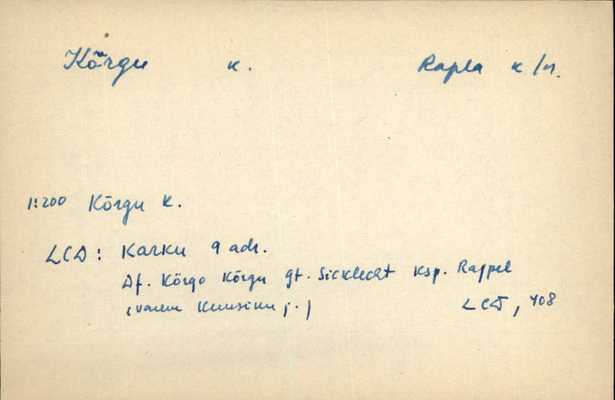 Kõrgu k. Rapla k/n.
1:200 Kõrgu k.
LCD: Karku 9 adr.
Df. Kõrgo Kõrgu gt. Sicklecht Ksp. Rappel
(varem Kuusiku j.) LCD, 408